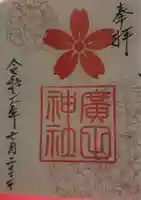 奉拝
廣
神社
令和六年 月二十三日